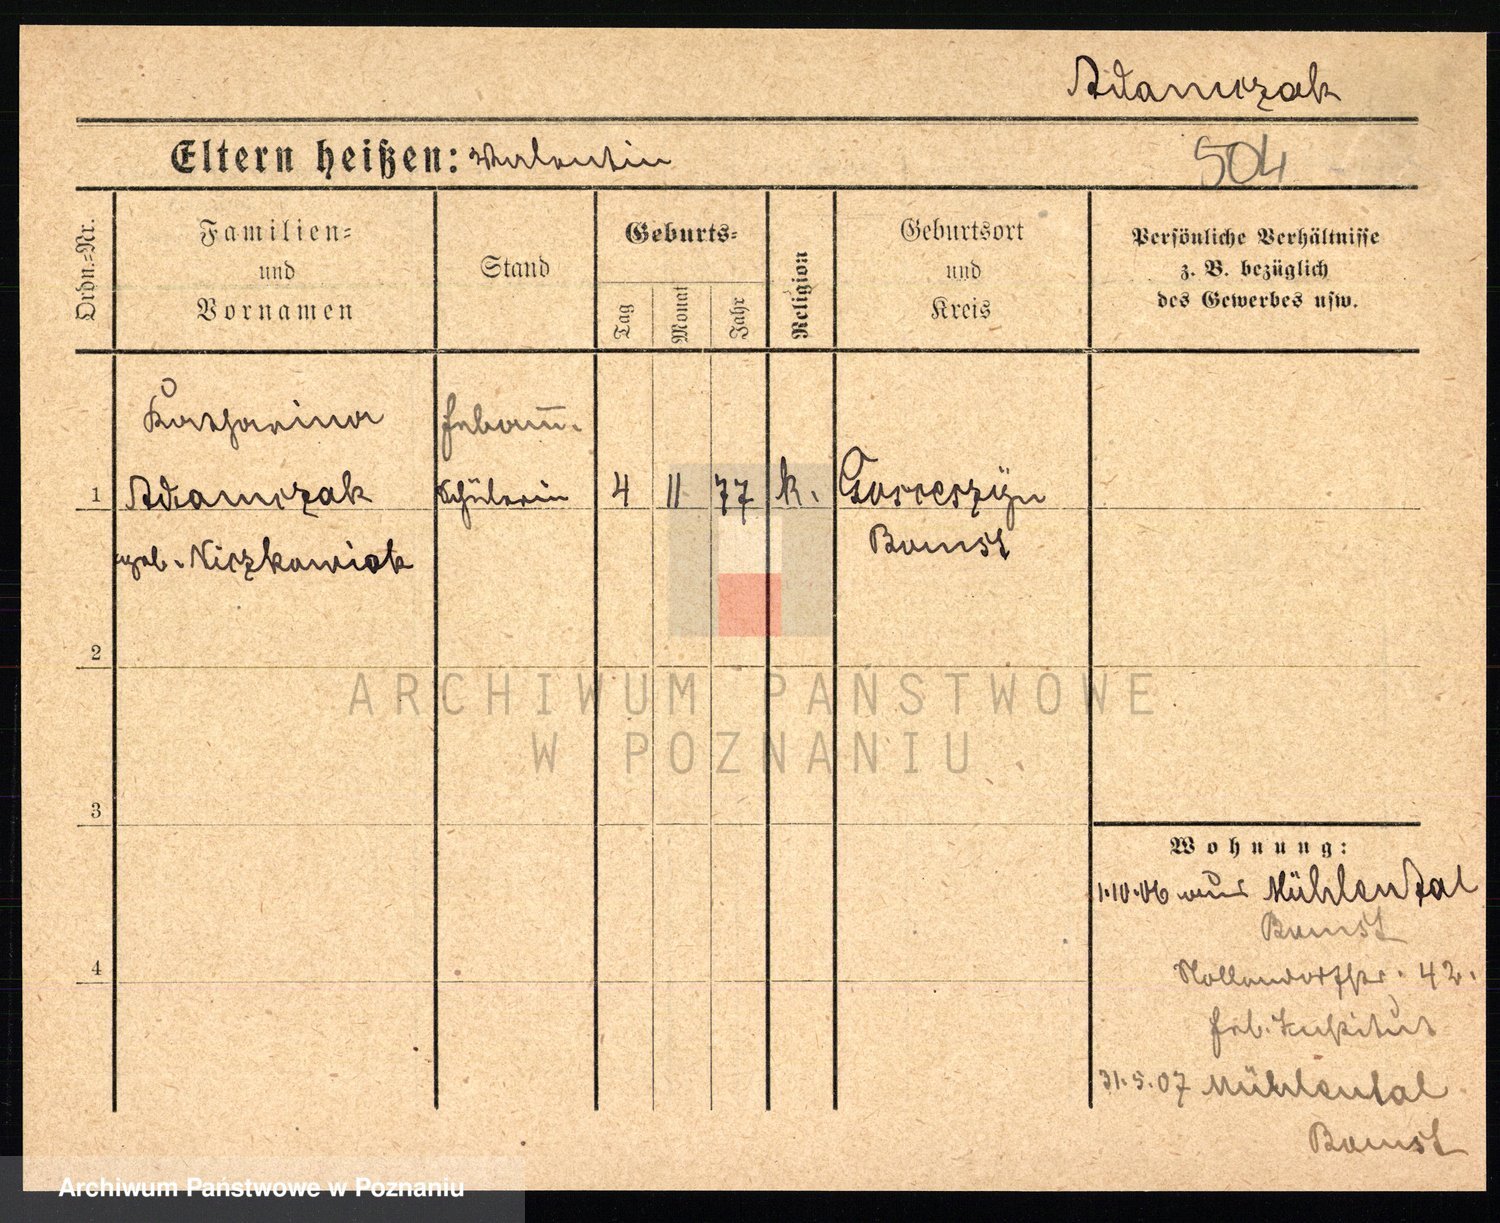 Adamczak
Eltern heißen: Valentin
504
Ordn.-Nr.
Familien-
und
Vornamen
Stand
Geburts-
Tag
Monat
Jahr
Religion
Geburtsort
und
Kreis
Persönliche Verhältnisse
z. B. bezüglich
des Gewerbes usw.
Katharina
Hebamm.
1 Adamczak Schülerin 4 11 77 k. Goscieszyn
geb. Niczkowiak Bomst
2
3
4
Wohnung:
1.10.06 aus Mühlental
Bomst
Nollendorfstr. 42.
Heb. Institut
31.5.07 Mühlental
Bomst
ARCHIWUM PAŃSTWOWE
W POZNANIU
Archiwum Państwowe w Poznaniu